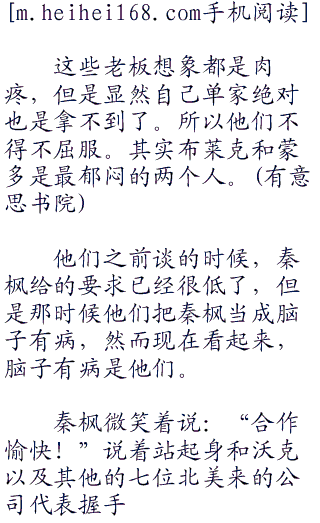 [m.heihei168.com手机阅读]
这些老板想象都是肉
疼，但是显然自己单家绝对
也是拿不到了。所以他们不
得不屈服。其实布莱克和蒙
多是最郁闷的两个人。(有意
思书院)
他们之前谈的时候，秦
枫给的要求已经很低了，但
是那时候他们把秦枫当成脑
子有病，然而现在看起来，
脑子有病是他们。
秦枫微笑着说：“合作
愉快！”说着站起身和沃克
以及其他的七位北美来的公
司代表握手